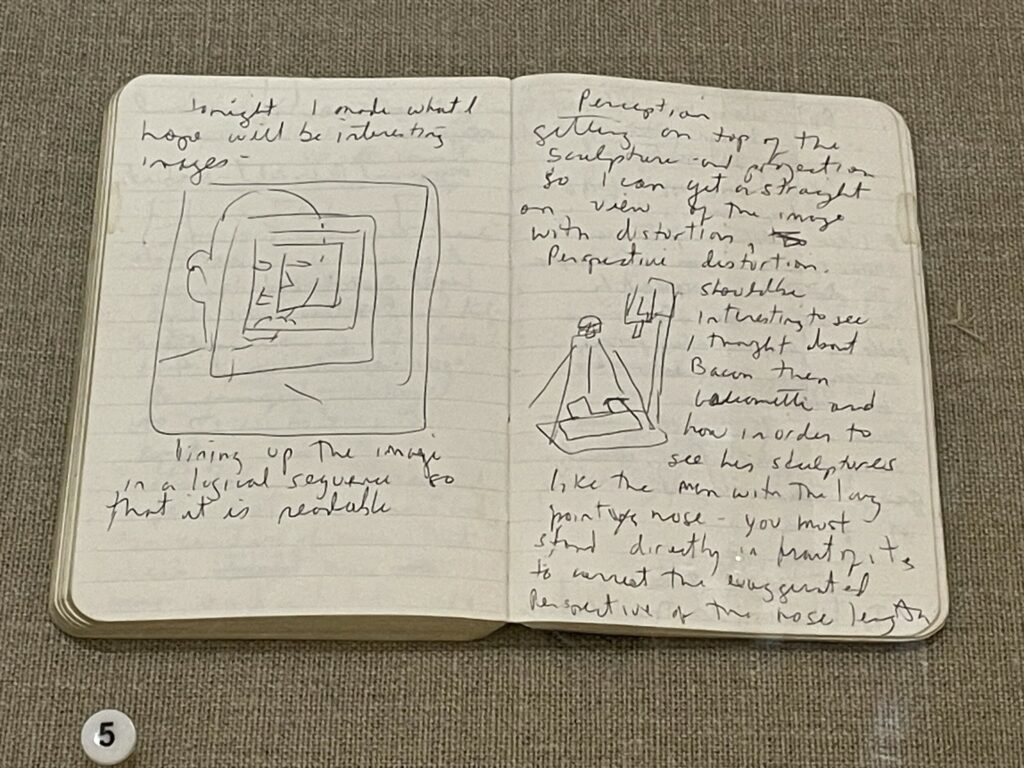 tonight I made what I
hope will be interesting
images -
lining up the image
in a logical sequence so
that it is readable
Perception
getting on top of the
sculpture and projection
so I can get a straight
on view of the image
with distortion,
Perspective distortion.
should be
interesting to see
I thought about
Bacon then
and
how in order to
see his sculptures
like the man with the long
pointy nose - you must
stand directly in front of it
to correct the exaggerated
perspective of the nose length
5